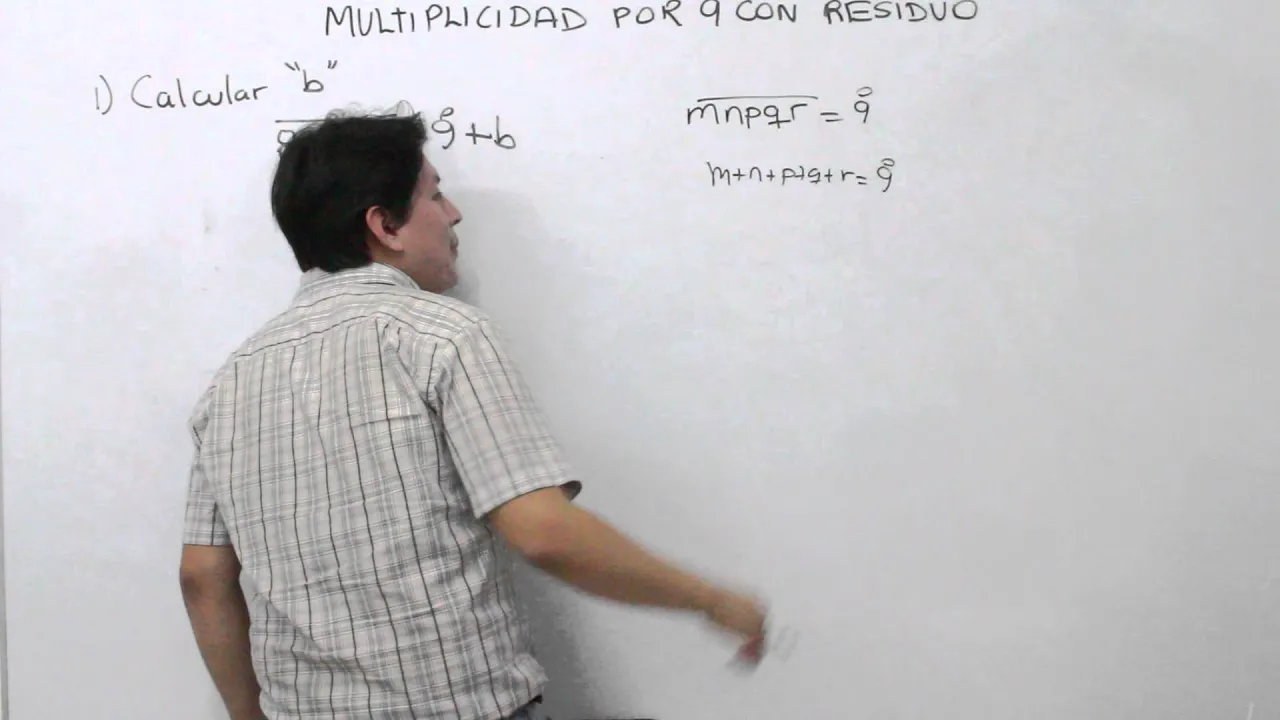 MULTIPLICIDAD POR 9 CON RESIDUO
1) Calcular "b"
9̊+b
mnpqr = 9̊
m+n+p+q+r= 9̊